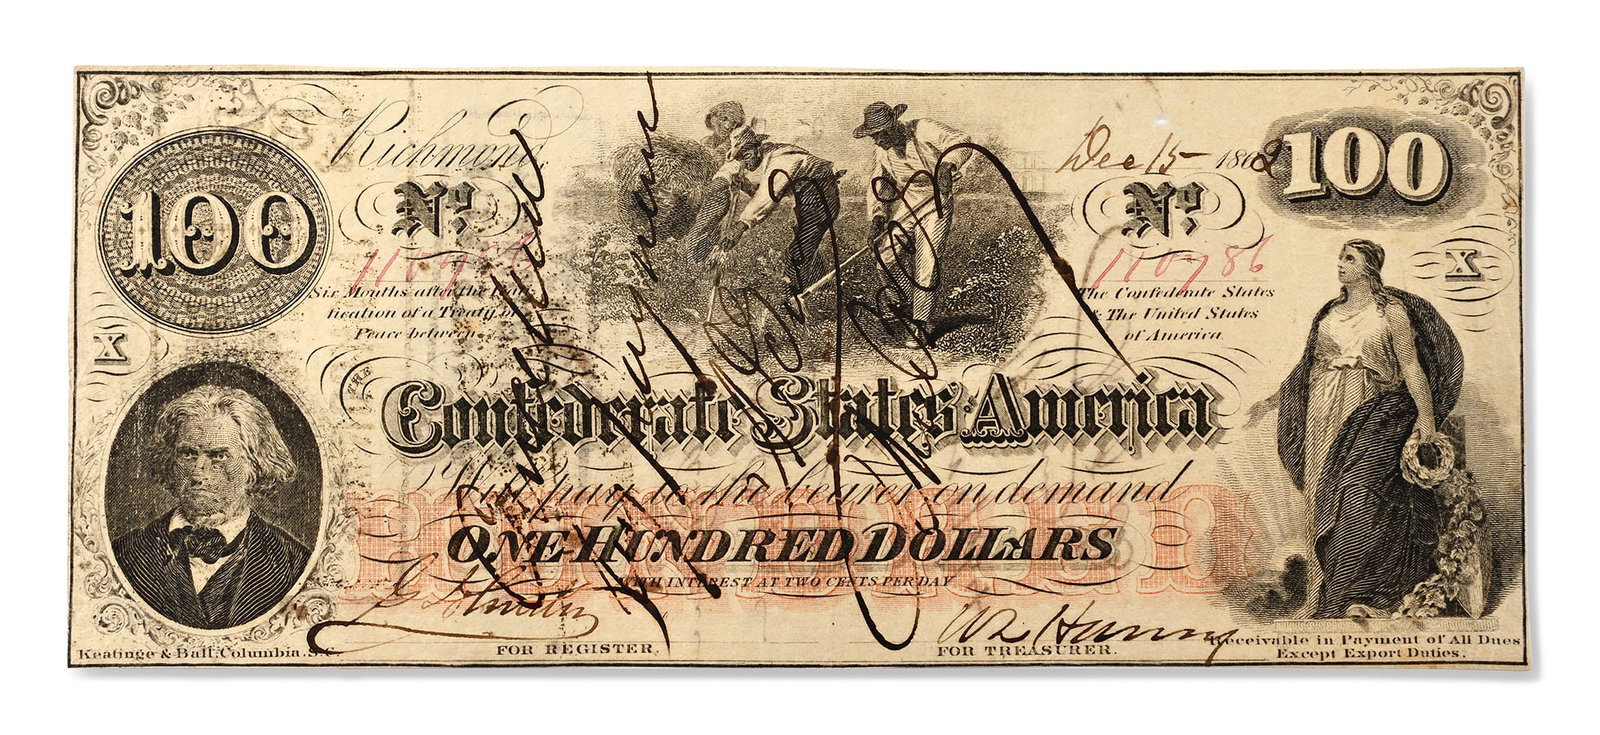 100
Richmond
Dec 15 1862
100
No.
No.
110786
110786
Six Months after the Ra-
tification of a Treaty of
Peace between
The Confederate States
& The United States
of America
X
X
THE
Confederate States America
Will pay to the bearer on demand
HUNDRED
ONE HUNDRED DOLLARS
WITH INTEREST AT TWO CENTS PER DAY
FOR REGISTER.
FOR TREASURER.
Receivable in Payment of All Dues
Except Export Duties.
Keatinge & Ball, Columbia, S.C.